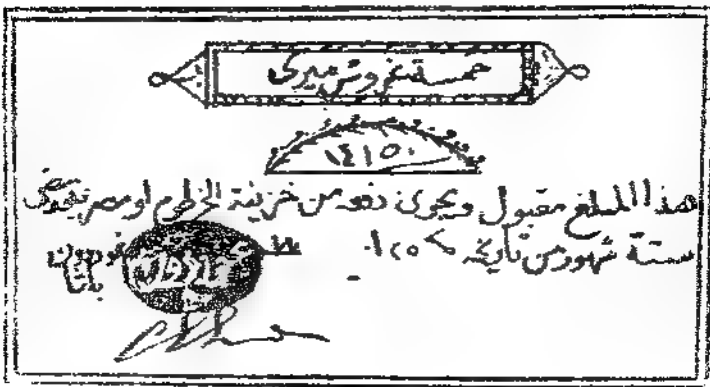 خمسة غروش ميرى
١٤١٥٠
هذا المبلغ مقبول ويجرى دفعه من خزينة الخرطوم او مصر بعد مضى
ستة شهور من تاريخه غوردون
باشا